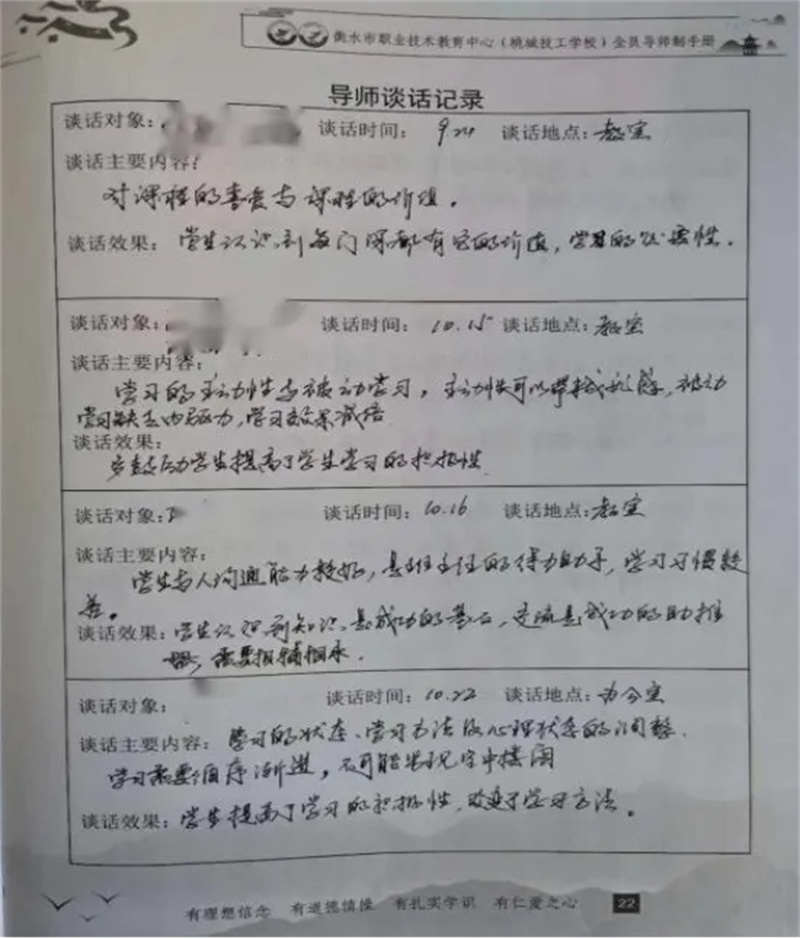 衡水市职业技术教育中心（桃城技工学校）全员导师制手册
导师谈话记录
谈话对象： 谈话时间： 9.24 谈话地点：教室
谈话主要内容：
对课程的喜爱与课程的价值。
谈话效果： 学生认识到每门课都有它的价值，学习的必要性。
谈话对象： 谈话时间： 10.15 谈话地点：教室
谈话主要内容：
学习的主动性与被动学习，主动性可以，被动
学习缺乏内驱力，学习效果减倍
谈话效果：
多鼓励学生提高了学生学习的积极性
谈话对象： 谈话时间：10.16 谈话地点：教室
谈话主要内容：
学生与人沟通能力较好，是班主任的得力助手，学习习惯较
差。
谈话效果：学生认识到知识是成功的基石，交流是成功的助推
，需要相辅相承．
谈话对象： 谈话时间：10.22 谈话地点：办公室
谈话主要内容：学习的状态、学习方法及心理状态的调整．
学习需要循序渐进，不可能出现空中楼阁
谈话效果：学生提高了学习的积极性，改变了学习方法。
有理想信念 有道德情操 有扎实学识 有仁爱之心 22